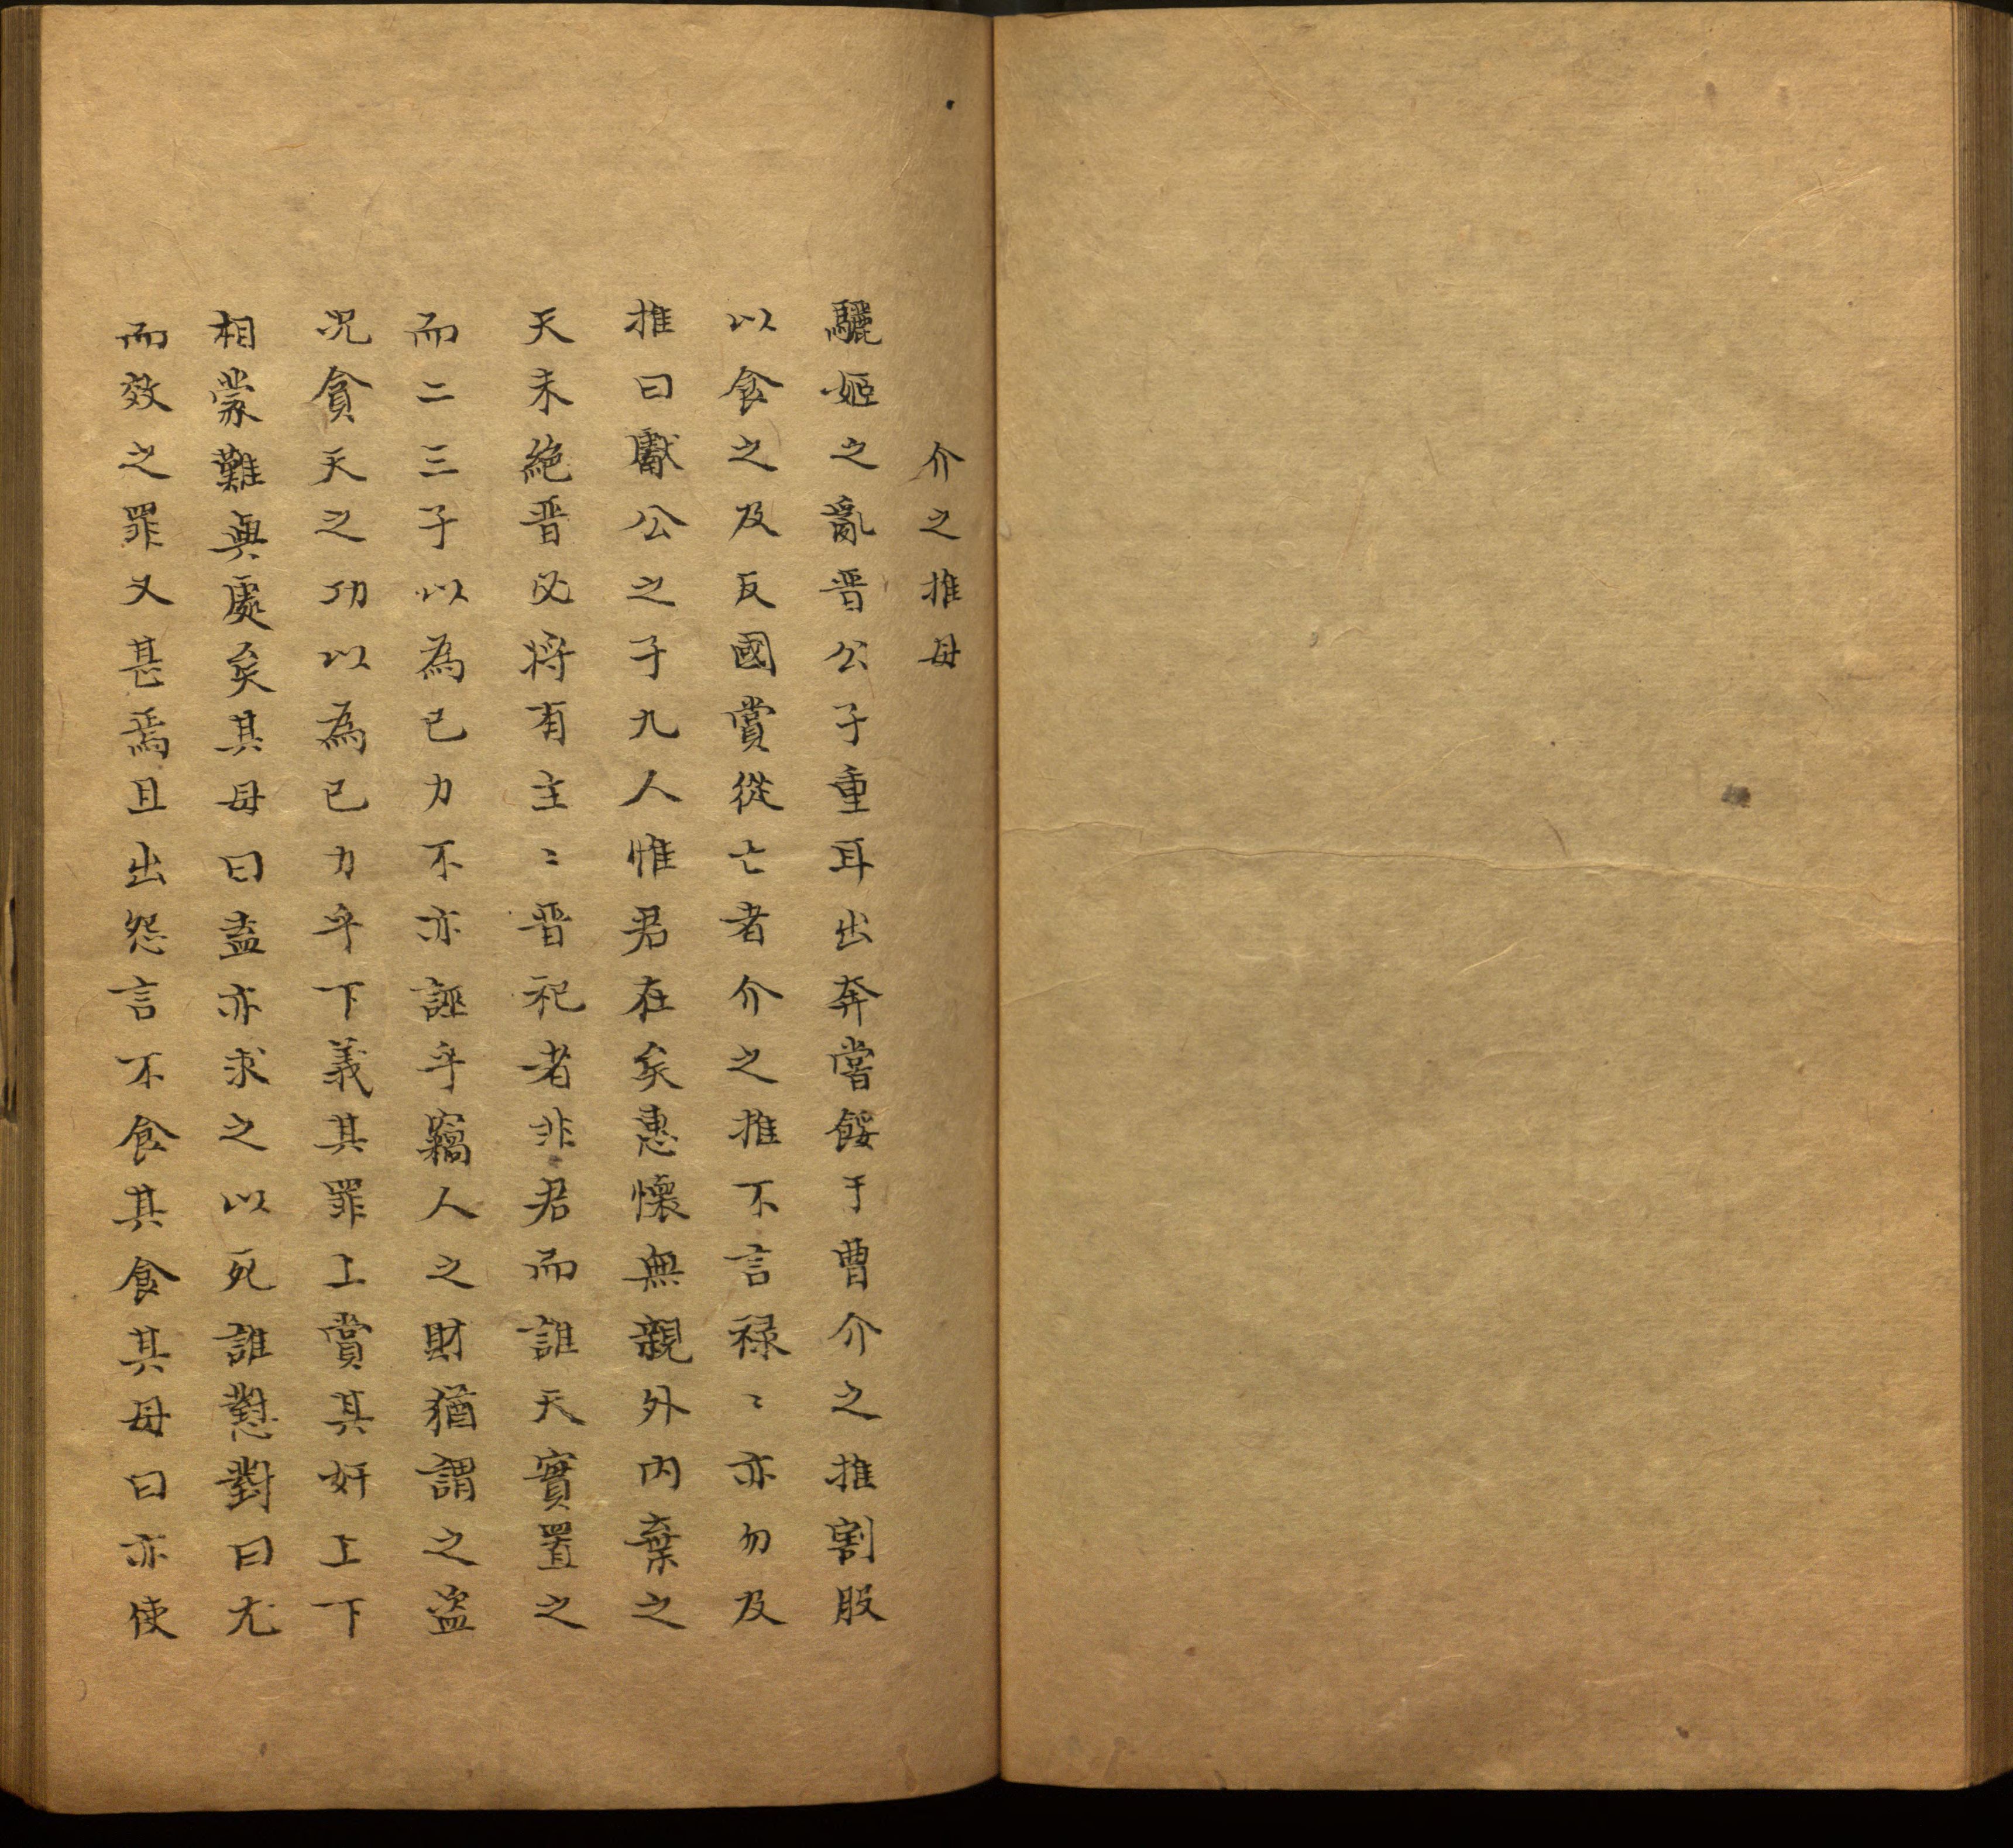 介之推母
驪姬之亂晋公子重耳出奔嘗餒于曹介之推割股
以食之及反國賞從亡者介之推不言禄〻亦勿及
推曰獻公之子九人惟君在矣惠懷無親外内棄之
天未絶晋必将有主〻晋祀者非君而誰天實置之
而二三子以為已力不亦誣乎竊人之財猶謂之盗
况貪天之功以為已力乎下義其罪上賞其奸上下
相蒙難與處矣其母曰盍亦求之以死誰懟對曰尤
而效之罪又甚焉且出怨言不食其食其母曰亦使